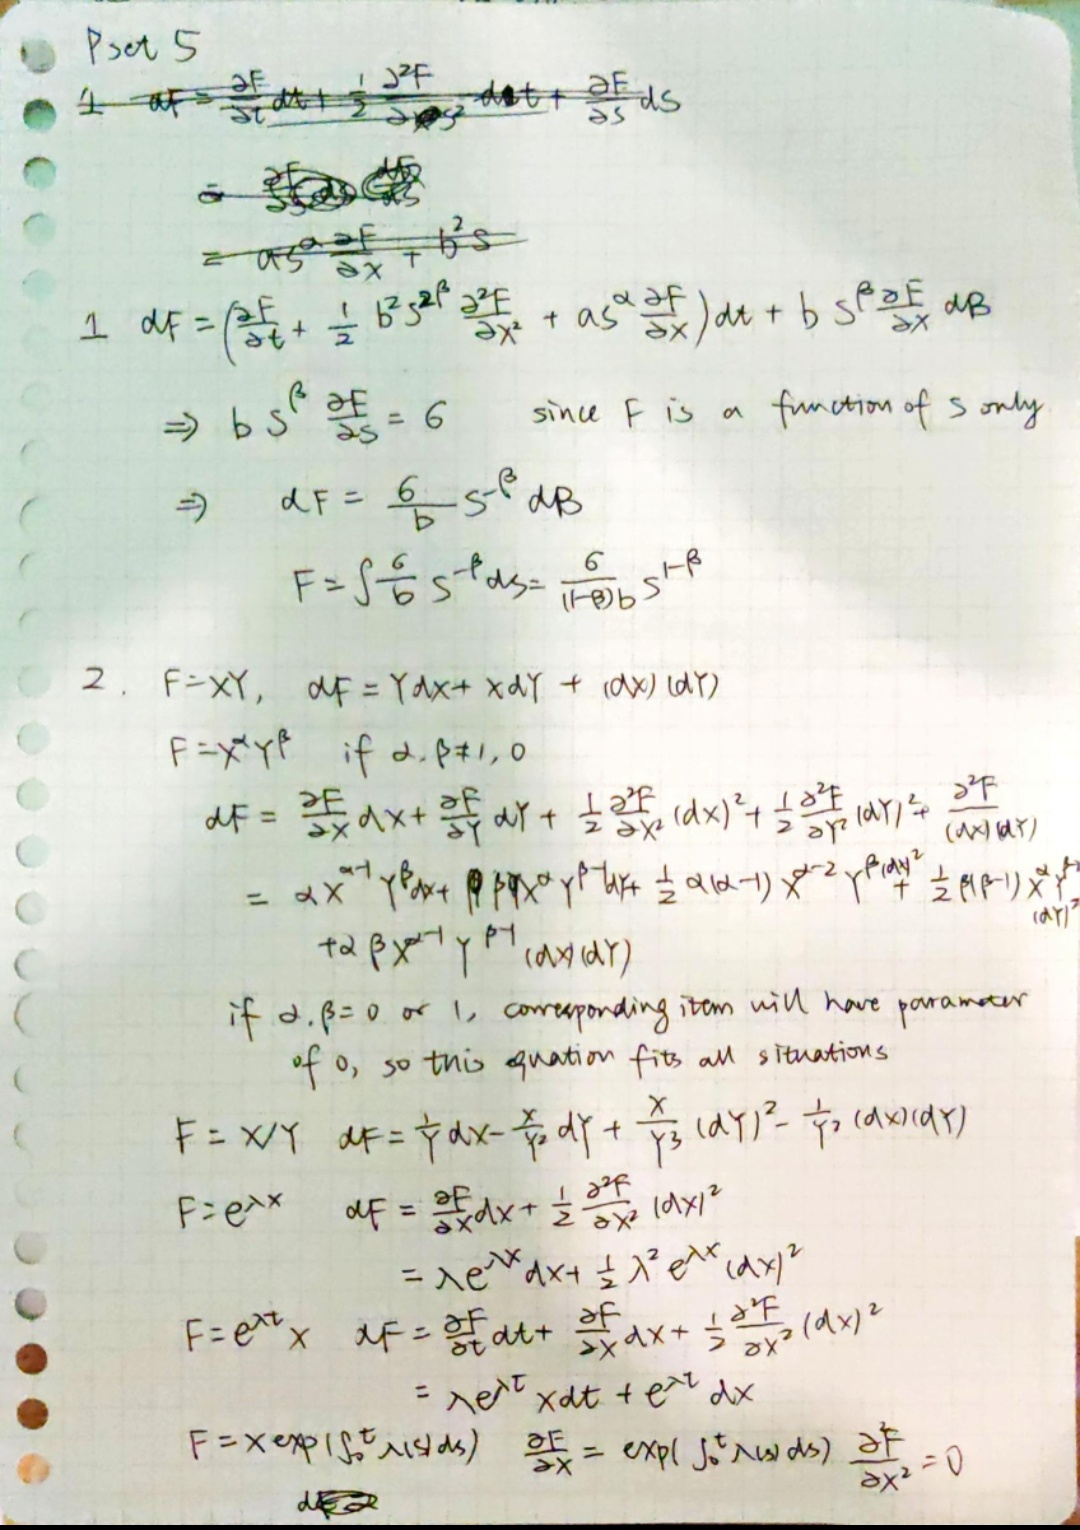 Pset 5
1 dF = ∂F/∂t dt + 1/2 ∂²F/∂s² dt + ∂F/∂s ds
= as^α ∂F/∂x + b²s
1 dF = (∂F/∂t + 1/2 b²s^2β ∂²F/∂x² + as^α ∂F/∂x) dt + b s^β ∂F/∂x dB
⇒ b s^β ∂F/∂s = 6 since F is a function of s only
⇒ dF = 6/b s^-β dB
F = ∫ 6/b s^-β ds = 6/((1-β)b) s^1-β
2. F = XY, dF = Y dx + x dY + (dx)(dY)
F = X^α Y^β if α, β ≠ 1, 0
dF = ∂F/∂x dx + ∂F/∂Y dY + 1/2 ∂²F/∂x² (dx)² + 1/2 ∂²F/∂Y² (dY)² + ∂²F/(dx)(dY)
= α X^α-1 Y^β dx + β X^α Y^β-1 dY + 1/2 α(α-1) X^α-2 Y^β (dx)² + 1/2 β(β-1) X^α Y^β-2 (dY)²
+ α β X^α-1 Y^β-1 (dx)(dY)
if α, β = 0 or 1, corresponding item will have parameter
of 0, so this equation fits all situations
F = X/Y dF = 1/Y dx - x/Y² dY + x/Y³ (dY)² - 1/Y² (dx)(dY)
F = e^λx dF = ∂F/∂x dx + 1/2 ∂²F/∂x² (dx)²
= λe^λx dx + 1/2 λ² e^λx (dx)²
F = e^λt x dF = ∂F/∂t dt + ∂F/∂x dx + 1/2 ∂²F/∂x² (dx)²
= λe^λt x dt + e^λt dx
F = x exp(∫₀^t λ(s) ds) ∂F/∂x = exp(∫₀^t λ(s) ds) ∂²F/∂x² = 0